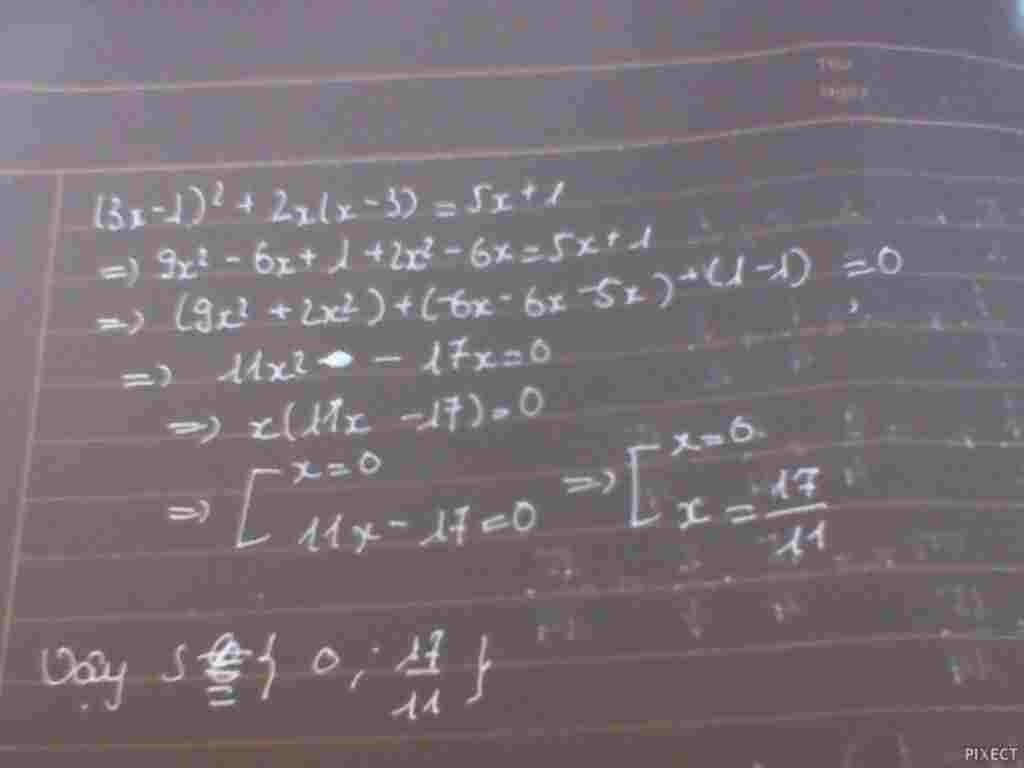 Thứ
Ngày
(3x-1)² + 2x(x-3) = 5x+1
=> 9x² - 6x + 1 + 2x² - 6x = 5x + 1
=> (9x² + 2x²) + (-6x - 6x - 5x) + (1 - 1) = 0
=> 11x² - 17x = 0
=> x(11x - 17) = 0
=> [ x = 0 => [ x = 0
11x - 17 = 0 x = 17/11
Vậy S = { 0 ; 17/11 }
PIXECT